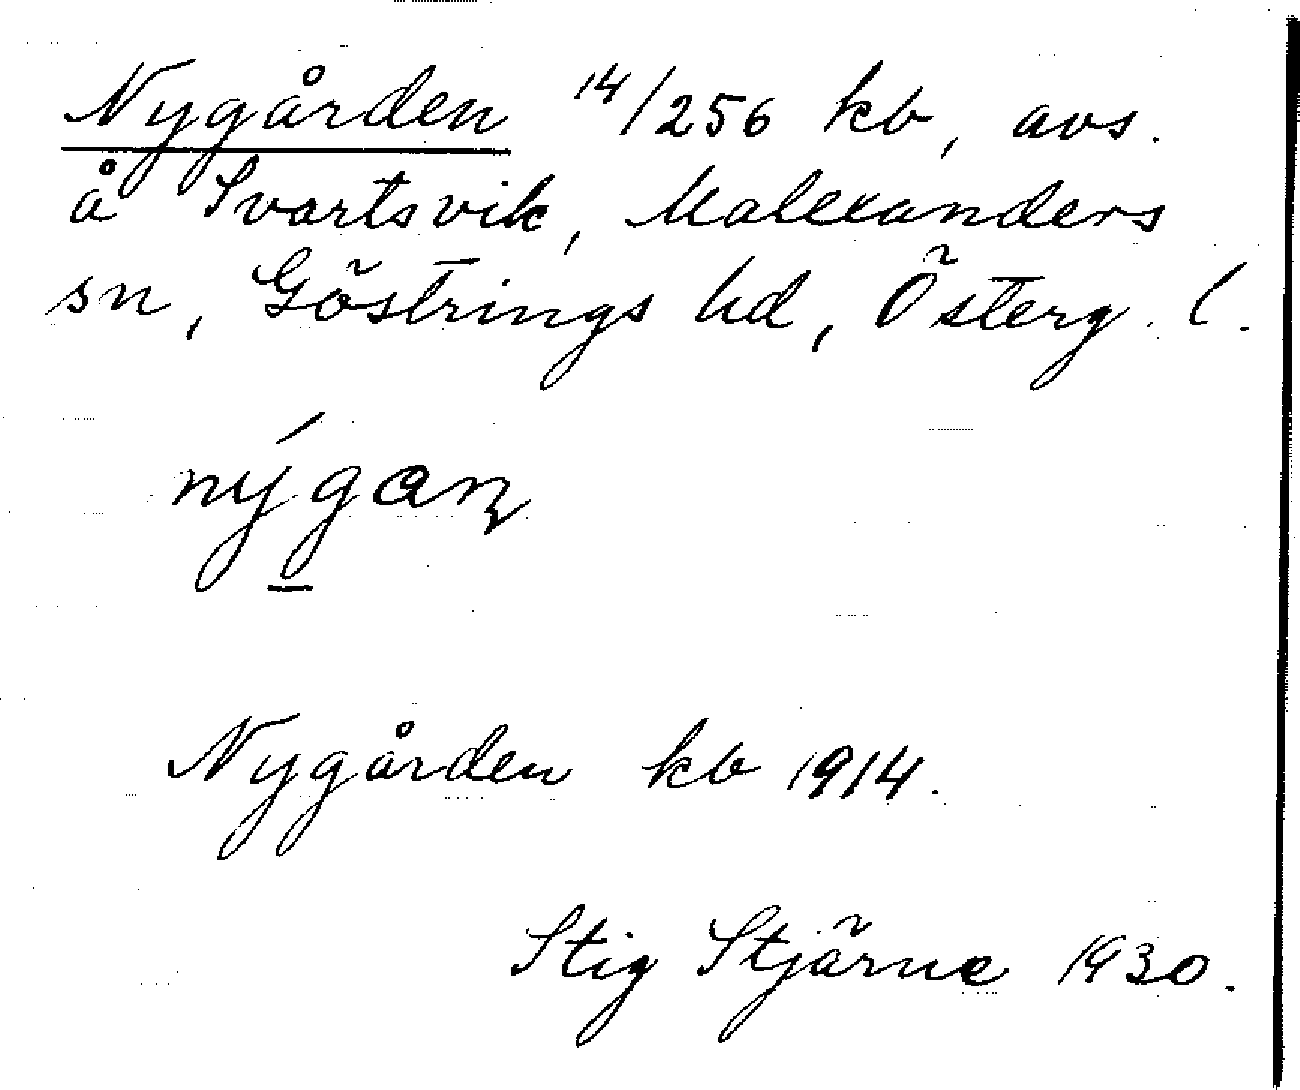 Nygården 14/256 kb, avs.
å Svartsvik, Malexanders
sn, Göstrings hd, Österg. l.
nýgan
Nygården kb 1914.
Stig Stjärne 1930.